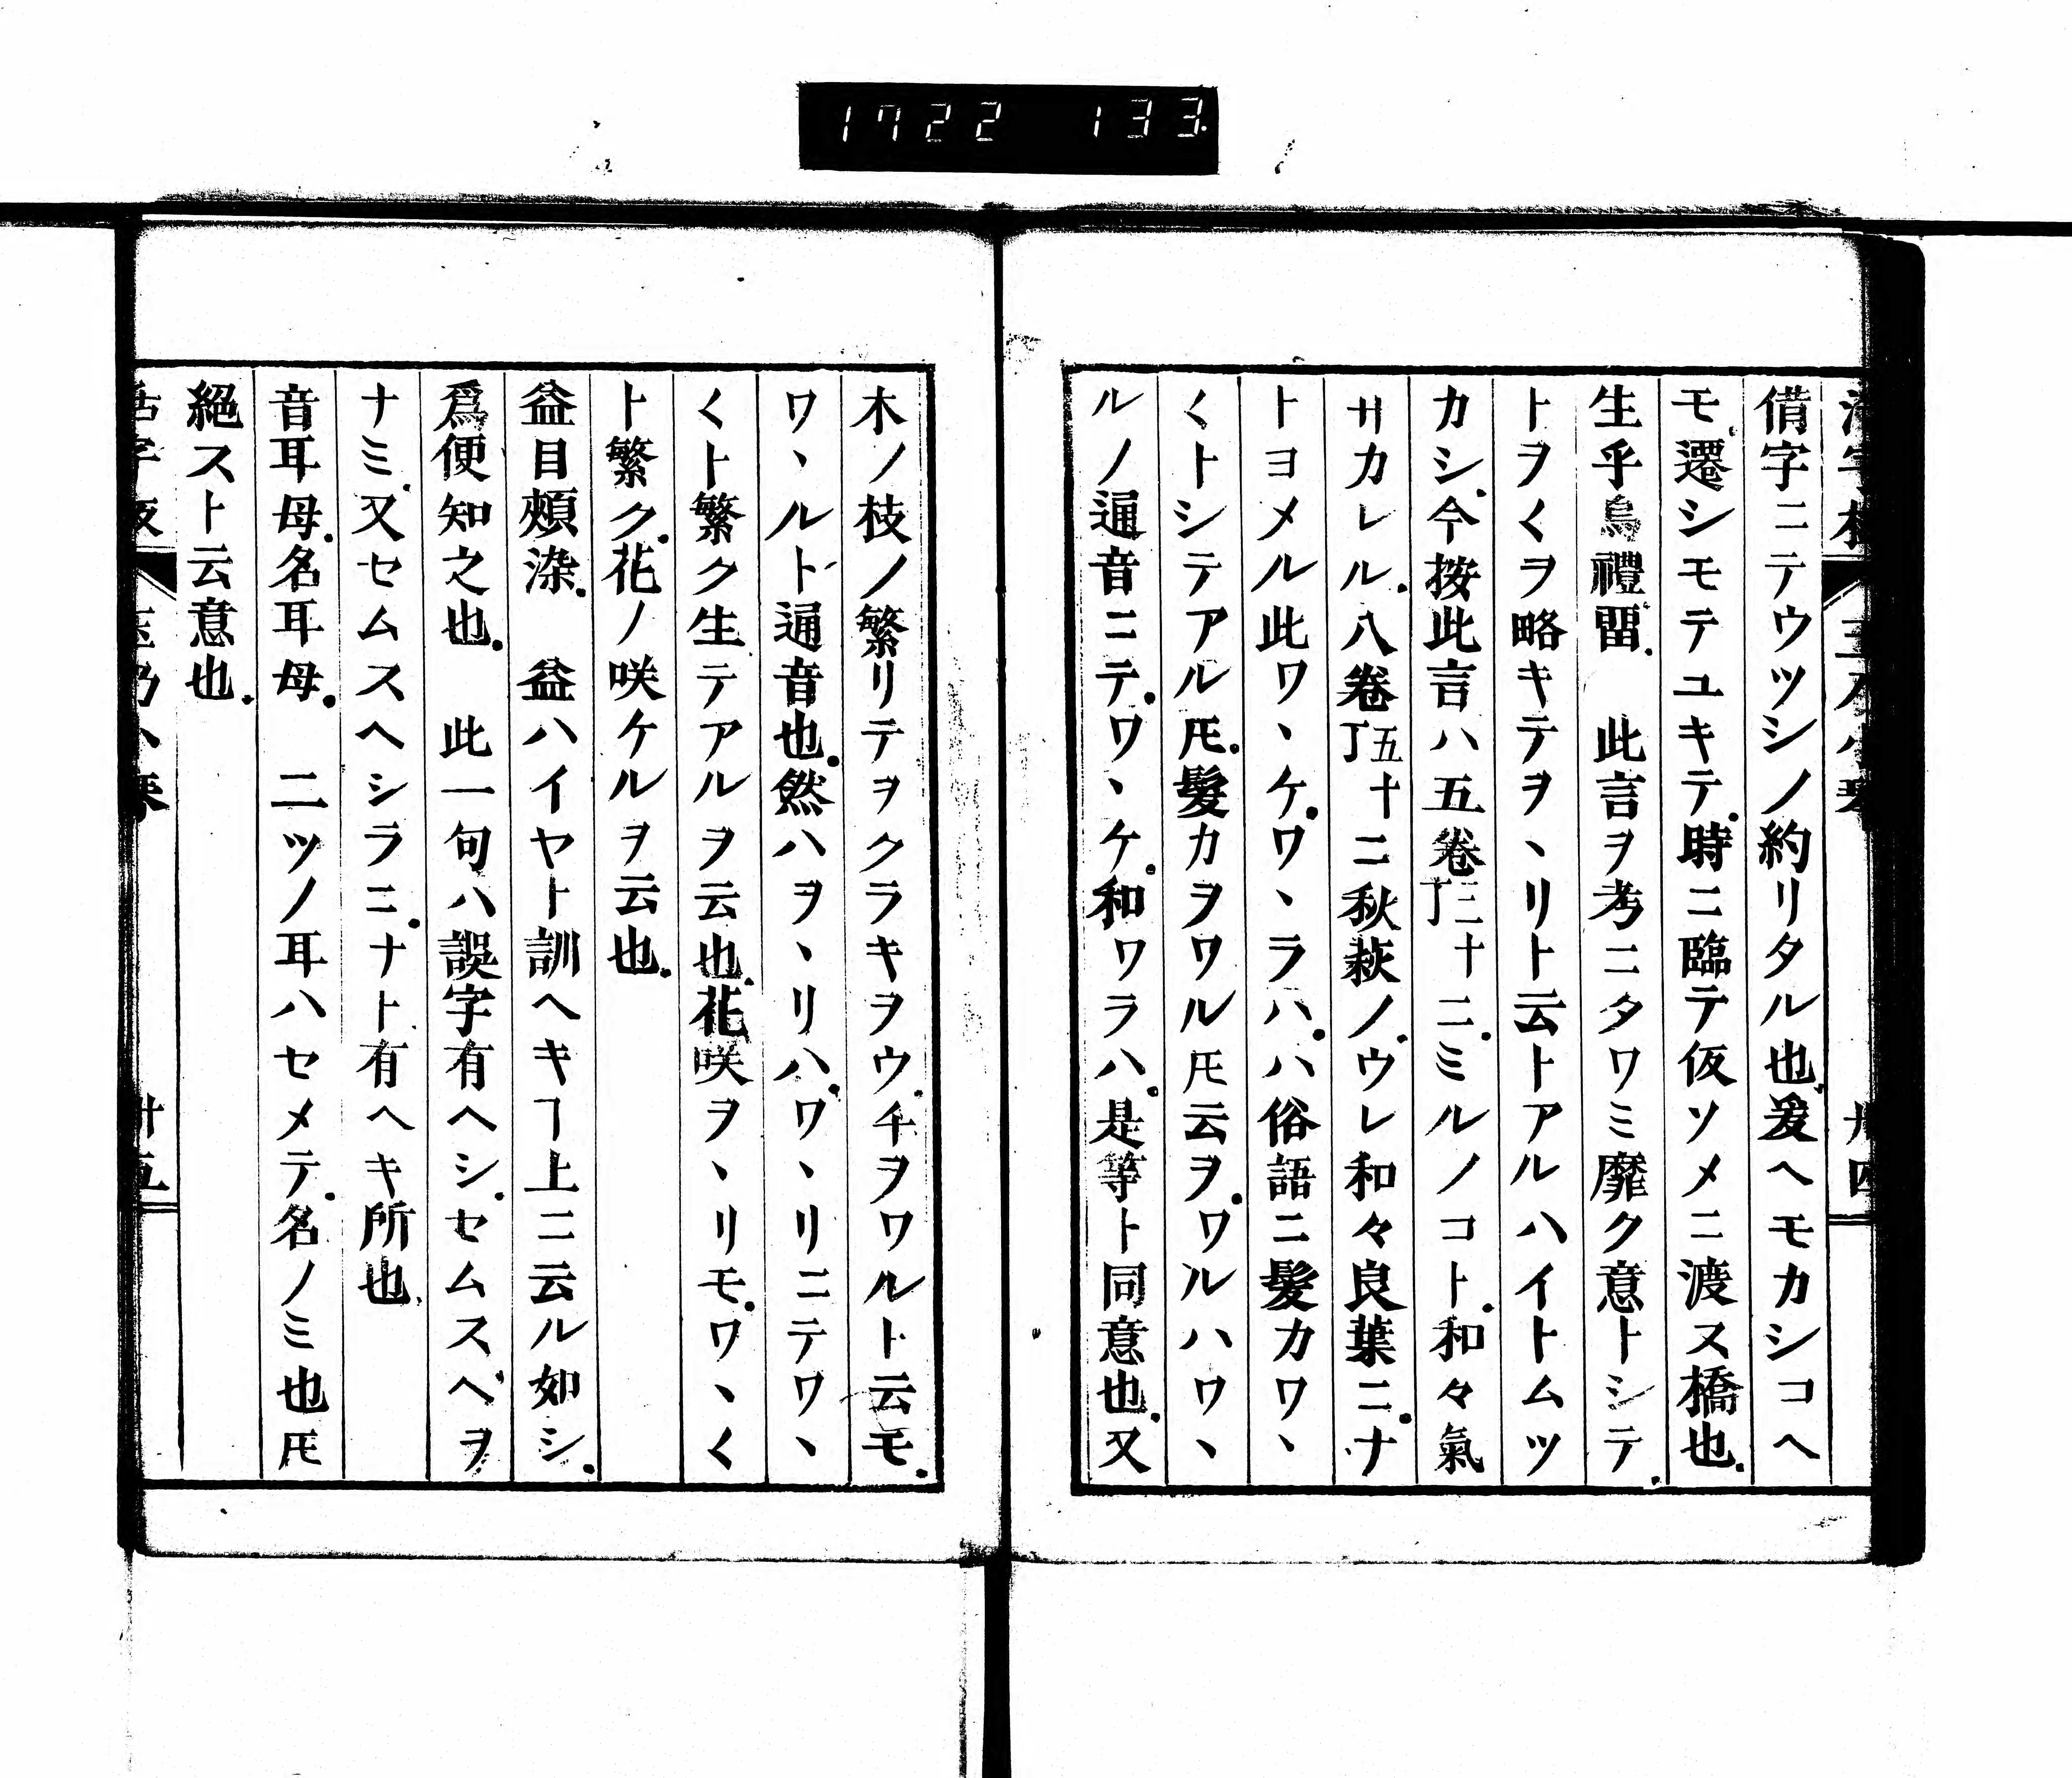 1722 133
借字ニテウツシノ約リタル也爰ヘモカシコヘ
モ遷シモテユキテ時ニ臨テ仮ソメニ渡ス橋也
生乎烏禮畱 此言ヲ考ニタワミ靡ク意トシテ
トヲ〱ヲ略キテヲヽリト云トアルハイトムツ
カシ今按此言ハ五卷二十二丁ミルノコト和々氣
サカレル八卷五十二丁秋萩ノウレ和々良葉ニナ
トヨメル此ワヽケワヽラハハ俗語ニ髮カワヽ
〱トシテアル𪜈髮カヲワル𪜈云ヲワルハワヽ
ルノ通音ニテワヽケ和ワラハ是等ト同意也又
木ノ枝ノ繁リテヲクラキヲウチヲワルト云モ
ワヽルト通音也然ハヲヽリハワヽリニテワヽ
〱ト繁ク生テアルヲ云也花咲ヲヽリモワヽ〱
ト繁ク花ノ咲ケルヲ云也
益目頰染 益ハイヤト訓ヘキヿ上ニ云ル如シ
爲便知之也 此一句ハ誤字有ヘシセムスベヲ
ナミ又セムスヘシラニナト有ヘキ所也
音耳母名耳母 二ツノ耳ハセメテ名ノミ也𪜈
絕スト云意也